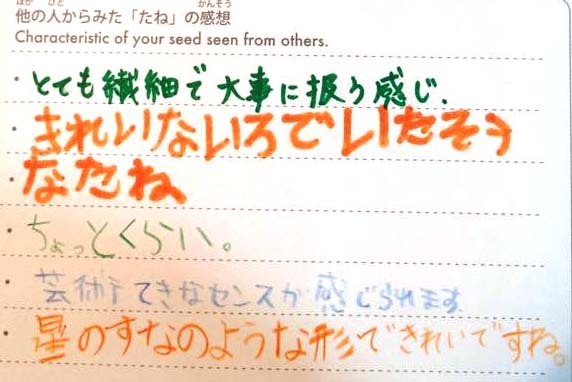 ほか ひと かんそう
他の人からみた「たね」の感想
Characteristic of your seed seen from others.
・とても繊細で大事に扱う感じ.
・きれいないろでいたそう
・なたね
・ちょっとくらい。
・芸術てきなセンスが感じられます
・星のすなのような形できれいですね。